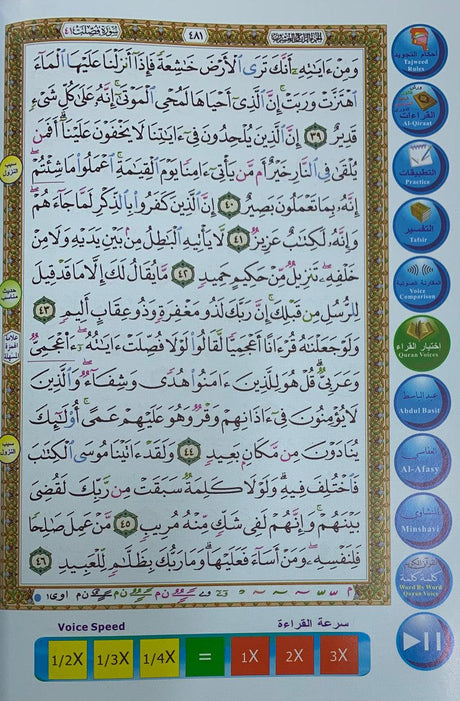 سُورَةُ فُصِّلَتْ ٤١
٤٨١
وَمِنْ ءَايَٰتِهِۦٓ أَنَّكَ تَرَى ٱلْأَرْضَ خَٰشِعَةً فَإِذَآ أَنزَلْنَا عَلَيْهَا ٱلْمَآءَ
ٱهْتَزَّتْ وَرَبَتْ ۚ إِنَّ ٱلَّذِىٓ أَحْيَاهَا لَمُحْىِ ٱلْمَوْتَىٰٓ ۚ إِنَّهُۥ عَلَىٰ كُلِّ شَىْءٍ
قَدِيرٌ ٣٩ إِنَّ ٱلَّذِينَ يُلْحِدُونَ فِىٓ ءَايَٰتِنَا لَا يَخْفَوْنَ عَلَيْنَآ ۗ أَفَمَن
يُلْقَىٰ فِى ٱلنَّارِ خَيْرٌ أَم مَّن يَأْتِىٓ ءَامِنًا يَوْمَ ٱلْقِيَٰمَةِ ۚ ٱعْمَلُوا۟ مَا شِئْتُمْ ۖ
إِنَّهُۥ بِمَا تَعْمَلُونَ بَصِيرٌ ٤٠ إِنَّ ٱلَّذِينَ كَفَرُوا۟ بِٱلذِّكْرِ لَمَّا جَآءَهُمْ ۖ
وَإِنَّهُۥ لَكِتَٰبٌ عَزِيزٌ ٤١ لَّا يَأْتِيهِ ٱلْبَٰطِلُ مِنۢ بَيْنِ يَدَيْهِ وَلَا مِنْ
خَلْفِهِۦ ۖ تَنزِيلٌ مِّنْ حَكِيمٍ حَمِيدٍ ٤٢ مَّا يُقَالُ لَكَ إِلَّا مَا قَدْ قِيلَ
لِلرُّسُلِ مِن قَبْلِكَ ۚ إِنَّ رَبَّكَ لَذُو مَغْفِرَةٍ وَذُو عِقَابٍ أَلِيمٍ ٤٣
وَلَوْ جَعَلْنَٰهُ قُرْءَانًا أَعْجَمِيًّا لَّقَالُوا۟ لَوْلَا فُصِّلَتْ ءَايَٰتُهُۥٓ ۖ ءَا۬عْجَمِىٌّ
وَعَرَبِىٌّ ۗ قُلْ هُوَ لِلَّذِينَ ءَامَنُوا۟ هُدًى وَشِفَآءٌ ۖ وَٱلَّذِينَ
لَا يُؤْمِنُونَ فِىٓ ءَاذَانِهِمْ وَقْرٌ وَهُوَ عَلَيْهِمْ عَمًى ۚ أُو۟لَٰٓئِكَ
يُنَادَوْنَ مِن مَّكَانٍۭ بَعِيدٍ ٤٤ وَلَقَدْ ءَاتَيْنَا مُوسَى ٱلْكِتَٰبَ
فَٱخْتُلِفَ فِيهِ ۗ وَلَوْلَا كَلِمَةٌ سَبَقَتْ مِن رَّبِّكَ لَقُضِىَ
بَيْنَهُمْ ۚ وَإِنَّهُمْ لَفِى شَكٍّ مِّنْهُ مُرِيبٍ ٤٥ مَّنْ عَمِلَ صَٰلِحًا
فَلِنَفْسِهِۦ ۖ وَمَنْ أَسَآءَ فَعَلَيْهَا ۗ وَمَا رَبُّكَ بِظَلَّٰمٍ لِّلْعَبِيدِ ٤٦
سبب النزول
سبب النزول
أحكام التجويد
Tajweed Rules
القراءات
Al-Qiraat
التطبيقات
Practice
التفسير
Tafsir
المقارنة الصوتية
Voice Comparison
إختيار القراء
Quran Voices
عبد الباسط
Abdul Basit
العفاسي
Al-Afasy
المنشاوي
Minshavi
القرآن الكريم
كلمة كلمة
Word By Word
Quran Voice
Voice Speed
سرعة القراءة
1/2X 1/3X 1/4X = 1X 2X 3X